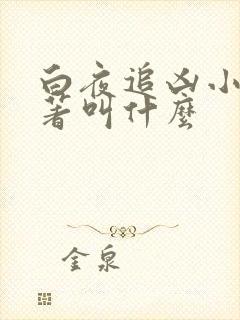 白夜追凶小
著叫什麼
金泉